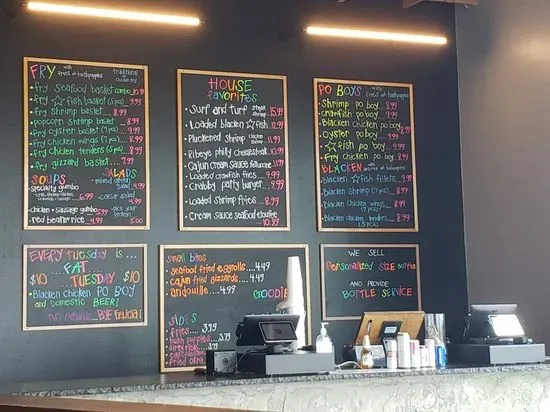 FRY with fries & hushpuppies
traditional
• fry seafood basket combo 10.99
• fry ☆fish basket (5 pcs) 9.99
• fry shrimp basket 8.99
• popcorn shrimp basket 8.99
• fry oyster basket (7 pcs) 9.99
• fry chicken wings (7 pcs) 8.99
• fry chicken tenders (5 pcs) 8.99
• fry gizzard basket 7.99
SOUPS
• specialty gumbo
6.99
• chicken & sausage gumbo 5.99
• red beans & rice 4.99
SALADS
• mixed green salad 4.99
• caesar salad 4.99
• pick your protein 5.00
HOUSE favorites
• Surf and turf steak shrimp 15.99
• Loaded blacken ☆fish 12.99
• Pluckered Shrimp
• Ribeye philly cheesesteak 10.99
• Cajun Cream Sauce fettuccine 11.99
• Loaded crawfish fries 9.99
• Crabby patty burger 9.99
• Loaded Shrimp fries 8.99
• Cream Sauce Seafood etouffee 10.99
PO BOYS with fries & hushpuppies
• Shrimp po boy 8.99
• crawfish po boy 9.99
• Blacken chicken po boy 8.99
• Oyster po boy 9.99
• ☆fish po boy 8.99
• Fry chicken po boy 8.99
BLACKEN
• Blacken ☆fish fillets 9.99
• Blacken Shrimp (7 pcs) 8.99
• Blacken Chicken Wings (7 pcs) 8.99
• Blacken chicken tenders 8.99
EVERY Tuesday is...
FAT
$10 TUESDAY $10
• Blacken chicken PO BOY
and Domestic BEER!
BYE FELICIA!
Small bites
• seafood fried eggrolls 4.49
• cajun fried gizzards 4.49
• andouille 4.99
GOODIE
SIDES
fries 3.99
hush puppies 2.99
dirty rice
fried okra
WE SELL
Personalized size bottles
AND PROVIDE
BOTTLE SERVICE